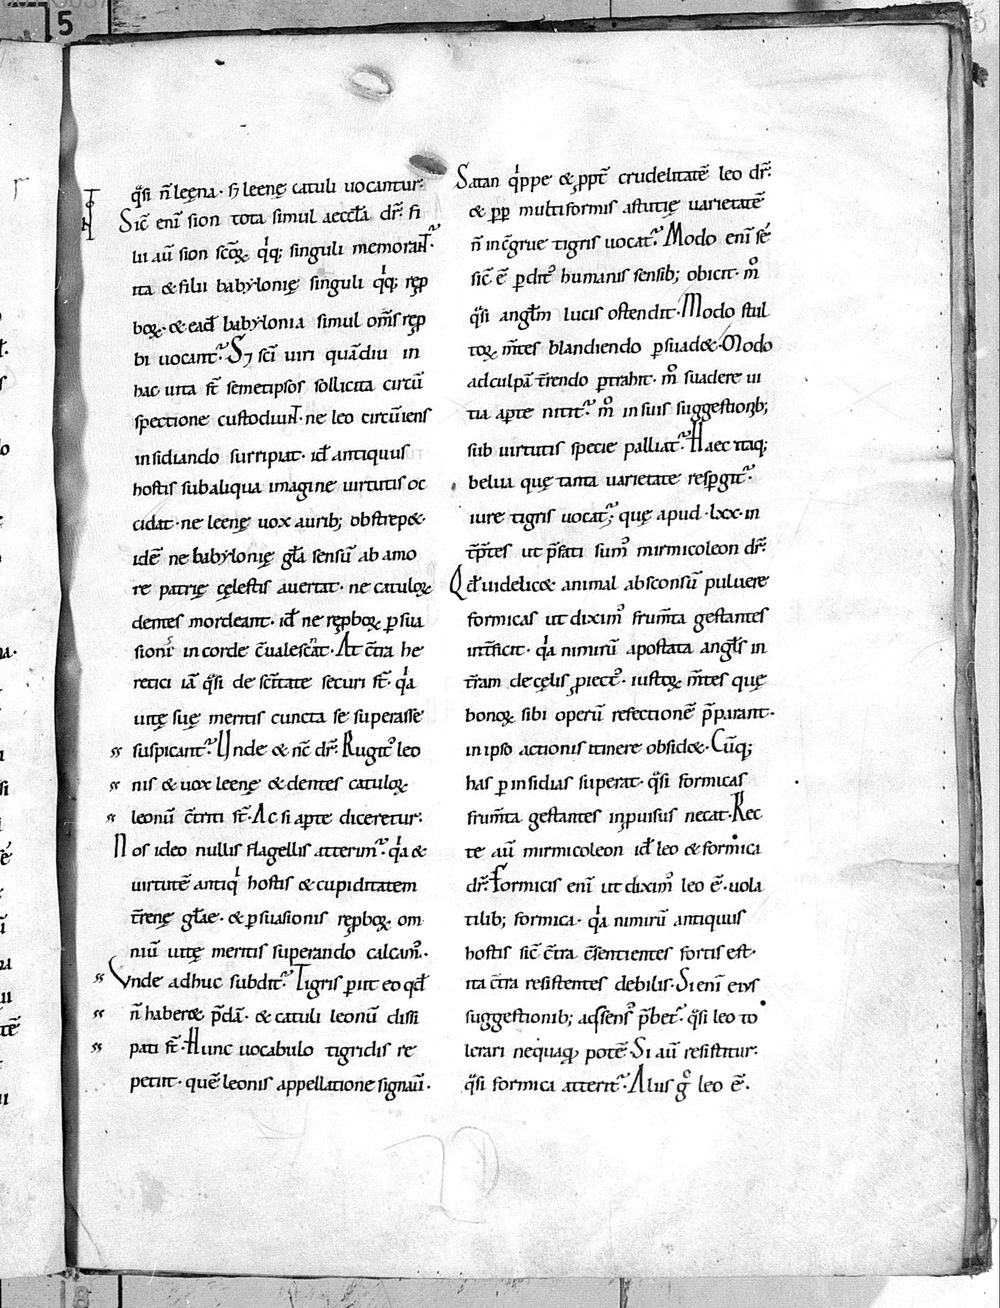 q̊si n̄ leęna · sꝫ leenę catuli uocantur:
Sic̄ enī sion tota simul aeccłā dr̄: fi
lii aū sion scōꝝ qͥq; singuli memorant̃·
ita & filii babylonię singuli qͥq; rep̄
boꝝ · & ead̄ babylonia simul om̄s rep̄
bi uocant̃· Sꝫ sc̄i uiri quādiu in
hac uita st̄ semetipsos sollicita circū
spectione custodiunt · ne leo circūiens
insidiando surripiat · id̄ antiquus
hostis sub aliqua imagine uirtutis oc
cidat · ne leenę uox aurib; obstrep&·
idē ne babylonię gła sensū ab amo
re patrię cęlestis auertat · ne catuloꝝ
dentes mordeant · id̄ ne rep̄boꝝ ꝑsua
sionis in corde c̄ualescant · At c̄tra he
retici iā q̊si de sc̄itate securi st̄ · qͥa
uitę suę meritis cuncta se superasse
suspicant̃· Vnde & nc̄ dr̄: Rugitꝰ leo
nis & uox leenę & dentes catuloꝝ
leonū c̄triti st̄ · Ac si aꝑte diceretur:
Nos ideo nullis flagellis atterimꝰ· qͥa &
uirtutē antiqͥ hostis & cupiditatem
t̄renę głae · & ꝑsuasionis rep̄boꝝ om
niū uitę meritis superando calcamꝰ·
Vnde adhuc subdit̃· Tigris ꝑiit eo qd̄
n̄ haber& p̄dā · & catuli leonū dissi
pati st̄ · Hunc uocabulo tigridis re
petiit · quē leonis appellatione signauī ·
Satan qͥppe & ꝓpt̄ crudelitatē leo dr̄:
& ꝓp̄ multiformis astutię uarietatē
n̄ inc̄grue tigris uocat̃· Modo enī sé
sic̄ ē ꝑditꝰ humanis sensib; obicit · m̊
q̊si angłm lucis ostendit · Modo stul
toꝝ m̄tes blandiendo ꝑsuad& · Modo
ad culpā t̄rendo ꝑtrahit · m̊ suadere ui
tia aꝑte nitit̃· m̊ in suis suggestionib;
sub uirtutis specie palliat̃· Haec itaq;
belua quę tanta uarietate resꝑgit̃·
iure tigris uocat̃; quę apud · lxx · in
t̄p̄tes ut p̄fati sumꝰ mirmicoleon dr̄:
Qd̄ uidelic& animal absconsū puluere
formicas ut diximꝰ frum̄ta gestantes
int̄ficit · qͥa nimirū apostata angłs in
t̄ram de cęlis ꝓiectꝰ· iustoꝝ m̄tes quę
bonoꝝ sibi operū refectionē p̄parant ·
in ipso actionis itinere obsid& · Cūq;
has ꝑ insidias superat · q̊si formicas
frum̄ta gestantes inꝓuisus necat · Rec
te aū mirmicoleon id̄ leo & formica
dr̄: Formicis enī ut diximꝰ leo ē · uola
tilib; formica · qͥa nimirū antiquus
hostis sic̄ c̄tra c̄sentientes fortis est ·
ita c̄tra resistentes debilis · Si enī eius
suggestionib; assensꝰ p̄bet̃· q̊si leo to
lerari nequaqꝫ potē · Si aū resistitur:
q̊si formica atterit̃· Aliis g̊ leo ē ·